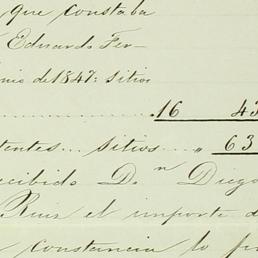 que constaba
Eduardo Fer-
nio de 1847: sitios
16 43
tentes... sitios... „ 63
ecibido D.n Diego
Ruiz el importe d
constancia lo